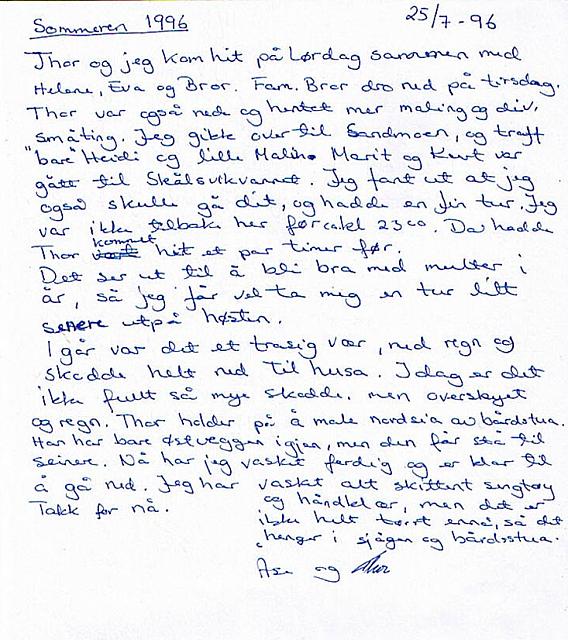 Sommeren 1996
25/7-96
Thor og jeg kom hit på Lørdag sammen med
Helene, Eva og Bror. Fam. Bror dro ned på tirsdag.
Thor var også nede og hentet mer maling og div.
småting. Jeg gikk over til Sandmoen, og traff
"bare" Heidi og lille Malin. Marit og Kurt var
gått til Skålsvikvannet. Jeg fant ut at jeg
også skulle gå dit, og hadde en fin tur. Jeg
var ikke tilbake her før cakl 2300. Da hadde
Thor kommet hit et par timer før.
Det ser ut til å bli bra med multer i
år, så jeg får vel ta meg en tur litt
senere utpå høsten.
I går var det et trasig vær, med regn og
skodde helt ned til husa. Idag er det
ikke fullt så mye skodde. men overskyet
og regn. Thor holder på å male nordsia av bårdstua.
Han har bare østveggen igjen, men den får stå til
seinere. Nå har jeg vasket ferdig og er klar til
å gå ned. Jeg har vasket alt skittent sengtøy
og håndklær, men det er
ikke helt tørrt ennå, så det
henger i sjågen og bårdstua.
Takk for nå.
Åse og Thor